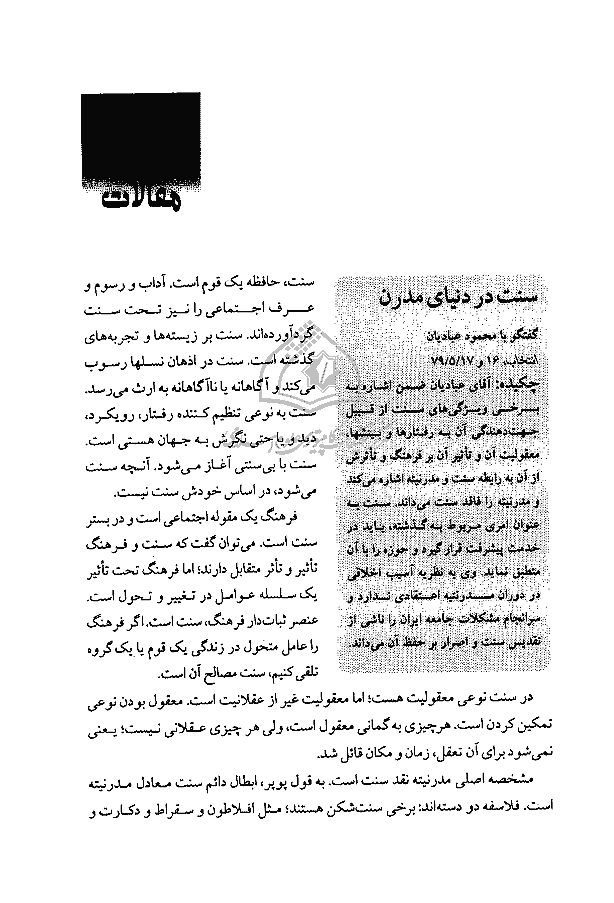 مقالات
سنت در دنیای مدرن
گفتگو با محمود عبادیان
انتخاب، ۱۶ و ۷۹/۵/۱۷
چکیده: آقای عبادیان ضمن اشاره به
برخی ویژگی‌های سنت از قبیل
جهت‌دهندگی آن به رفتارها و بینشها،
معقولیت آن و تأثیر آن بر فرهنگ و تأثرش
از آن به رابطه سنت و مدرنیته اشاره می‌کند
و مدرنیته را فاقد سنت می‌داند. سنت به
عنوان امری مربوط به گذشته، باید در
خدمت پیشرفت قرار گیرد و حوزه را با آن
منطبق نماید. وی به نظریه آسیب اخلاقی
در دوران مدرنیته اعتقادی ندارد و
سرانجام مشکلات جامعه ایران را ناشی از
تقدیس سنت و اصرار بر حفظ آن می‌داند.
سنت، حافظه یک قوم است. آداب و رسوم و
عرف اجتماعی را نیز تحت سنت
گردآورده‌اند. سنت بر زیسته‌ها و تجربه‌های
گذشته است. سنت در اذهان نسلها رسوب
می‌کند و آگاهانه یا ناآگاهانه به ارث می‌رسد.
سنت به نوعی تنظیم کننده رفتار، رویکرد،
دید و یا حتی نگرش به جهان هستی است.
سنت با بی‌سنتی آغاز می‌شود. آنچه سنت
می‌شود، در اساس خودش سنت نیست.
فرهنگ یک مقوله اجتماعی است و در بستر
سنت است. می‌توان گفت که سنت و فرهنگ
تأثیر و تأثر متقابل دارند؛ اما فرهنگ تحت تأثیر
یک سلسله عوامل در تغییر و تحول است.
عنصر ثبات‌دار فرهنگ، سنت است. اگر فرهنگ
را عامل متحول در زندگی یک قوم یا یک گروه
تلقی کنیم، سنت مصالح آن است.
در سنت نوعی معقولیت هست؛ اما معقولیت غیر از عقلانیت است. معقول بودن نوعی
تمکین کردن است. هرچیزی به گمانی معقول است، ولی هر چیزی عقلانی نیست؛ یعنی
نمی‌شود برای آن تعقل، زمان و مکان قائل شد.
مشخصه اصلی مدرنیته نقد سنت است. به قول پوپر، ابطال دائم سنت معادل مدرنیته
است. فلاسفه دو دسته‌اند: برخی سنت‌شکن هستند؛ مثل افلاطون و سقراط و دکارت و